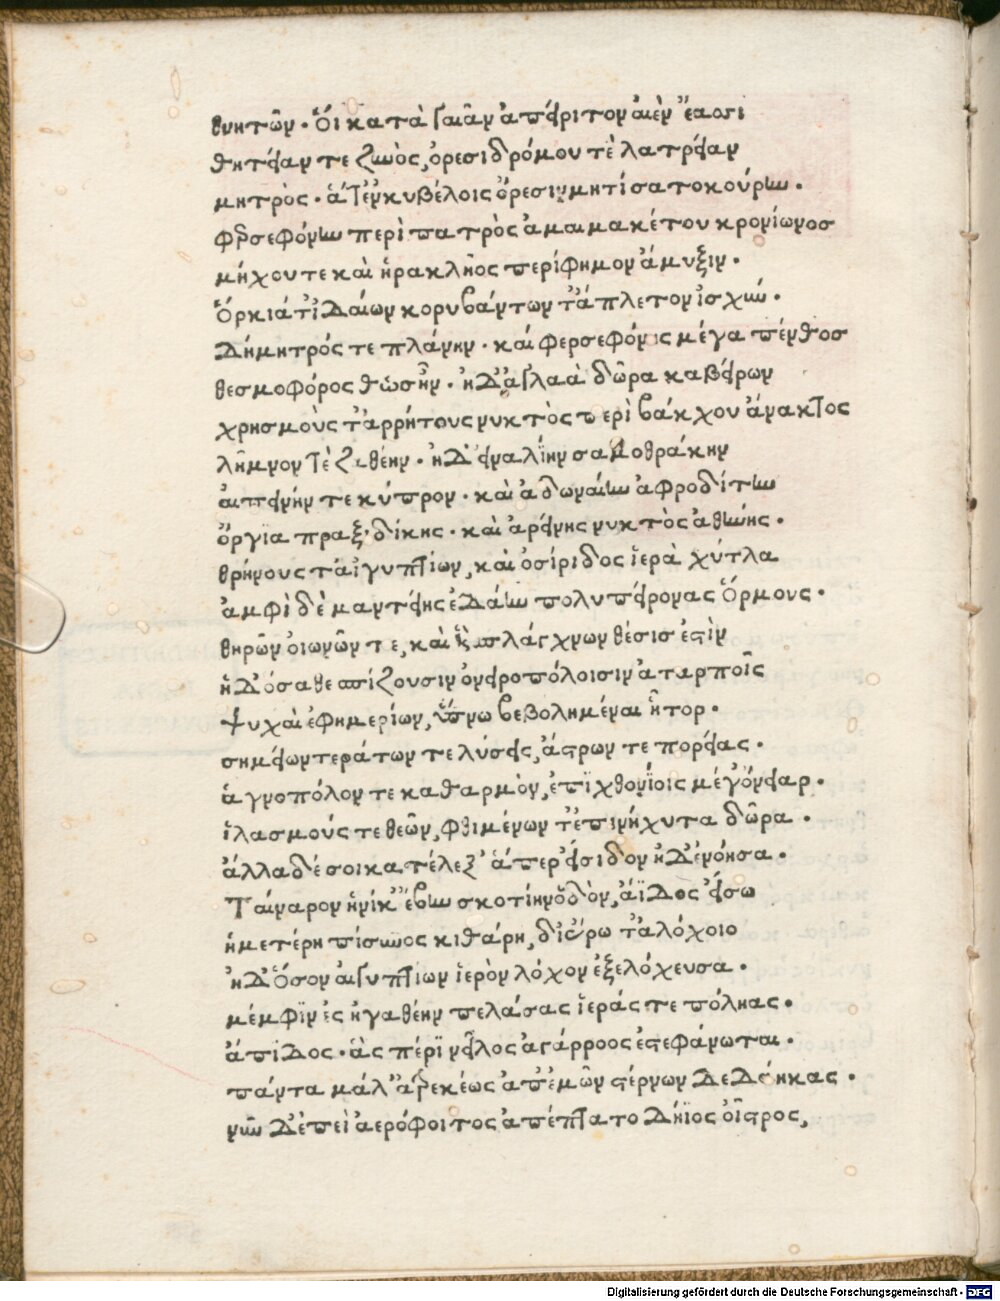 θνητῶν. Ὅι κατὰ γαῖαν ἀπείριτον αἰὲν ἔασσι
θητείαν τε ζωὸς, ὀρεσιδρόμου τὲ λατρείαν
μητρὸς. ἅ τ' ἐν κυβέλοις ὄρεσιν μητίσατο κούρην.
φερσεφόνην περὶ πατρὸς ἀμαιμακέτου κρονίωνοσ
μήχου τε καὶ ἡρακλῆος περίφημον ἄμυξιν.
Ὅρκιά τ' ἰδαίων κορυβάντων τ' ἄπλετον ἰσχύν.
Δήμητρός τε πλάνην. καὶ φερσεφόνης μέγα πένθοσ
θεσμοφόρος θ' ὡς ἦν. ἠ δ' ἀγλαὰ δῶρα καβείρων
χρησμοὺς τ' ἀρρήτους νυκτὸς περὶ βάκχου ἄνακτος
λῆμνον τὲ ζαθέην. ἠ δ' εἰναλίην σαμοθράκην
αἰπεινήν τε κύπρον. καὶ ἀδωναίην ἀφροδίτην
ὄργϊα πραξιδίκης. καὶ ἀρείνης νυκτὸς ἀθήνης.
θρήνους τ' αἰγυπτίων, καὶ ὀσίριδος ἱερὰ χύτλα
ἀμφὶ δὲ μαντείης ἐδάην πολυπείρονας ὅρμους.
θηρῶν οἰωνῶν τε, καὶ ἣ σπλάγχνων θέσισ ἐστὶν
ἠ δ' ὅσα θεσπίζουσιν ὀνειροπόλοισιν ἀταρποῖς
ψυχαὶ ἐφημερίων, ὕπνω βεβολημέναι ἦτορ.
σημείων τεράτων τε λύσεις, ἄστρων τε πορείας.
ἁγνοπόλον τε καθαρμὸν, ἐπιχθονίοις μέγ' ὄνειαρ.
ἱλασμούς τε θεῶν, φθιμένων τ' ἐπινήχυτα δῶρα.
ἄλλα δέ σοι κατέλεξ' ἅπερ εἴσιδον ἠ δ' ἐνόησα.
Ταίναρον ἡνίκ' ἔβην σκοτίην ὁδὸν, ἄϊδος εἴσω
ἡμετέρη πίσυνος κιθάρη, δι' ἔρωτ' ἀλόχοιο
ἠ δ' ὅσον αἰγυπτίων ἱερὸν λόχον ἐξελόχευσα.
μέμφϊν ἐς ἠγαθέην πελάσας ἱεράς τε πόληας.
ἄπιδος. ἃς πέρϊ νεῖλος ἀγάρροος ἐστεφάνωται.
πάντα μάλ' ἀτρεκέως ἀπ' ἐμῶν στέρνων δεδάηκας.
νῦν δ' ἐπεὶ ἀερόφοιτος ἀπέπτατο δήϊος οἶστρος,
Digitalisierung gefördert durch die Deutsche Forschungsgemeinschaft - DFG